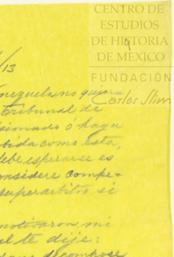 CENTRO DE
ESTUDIOS
DE HISTORIA
DE MÉXICO
FUNDACIÓN
Carlos Slim
/13
nezuela no quiere
Tribunal de
sionado ó haga
tida como esta,
debe esperarse es
onsidere compe-
superarbitro si
motivaron mi
el te dije: